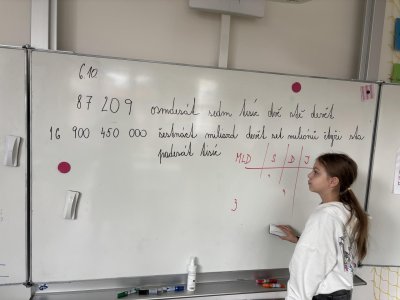 6.10.
87 209 osmdesát sedm tisíc dvě stě devět
16 900 450 000 šestnáct miliard devět set milionů čtyři sta
padesát tisíc
MLD S D J
3